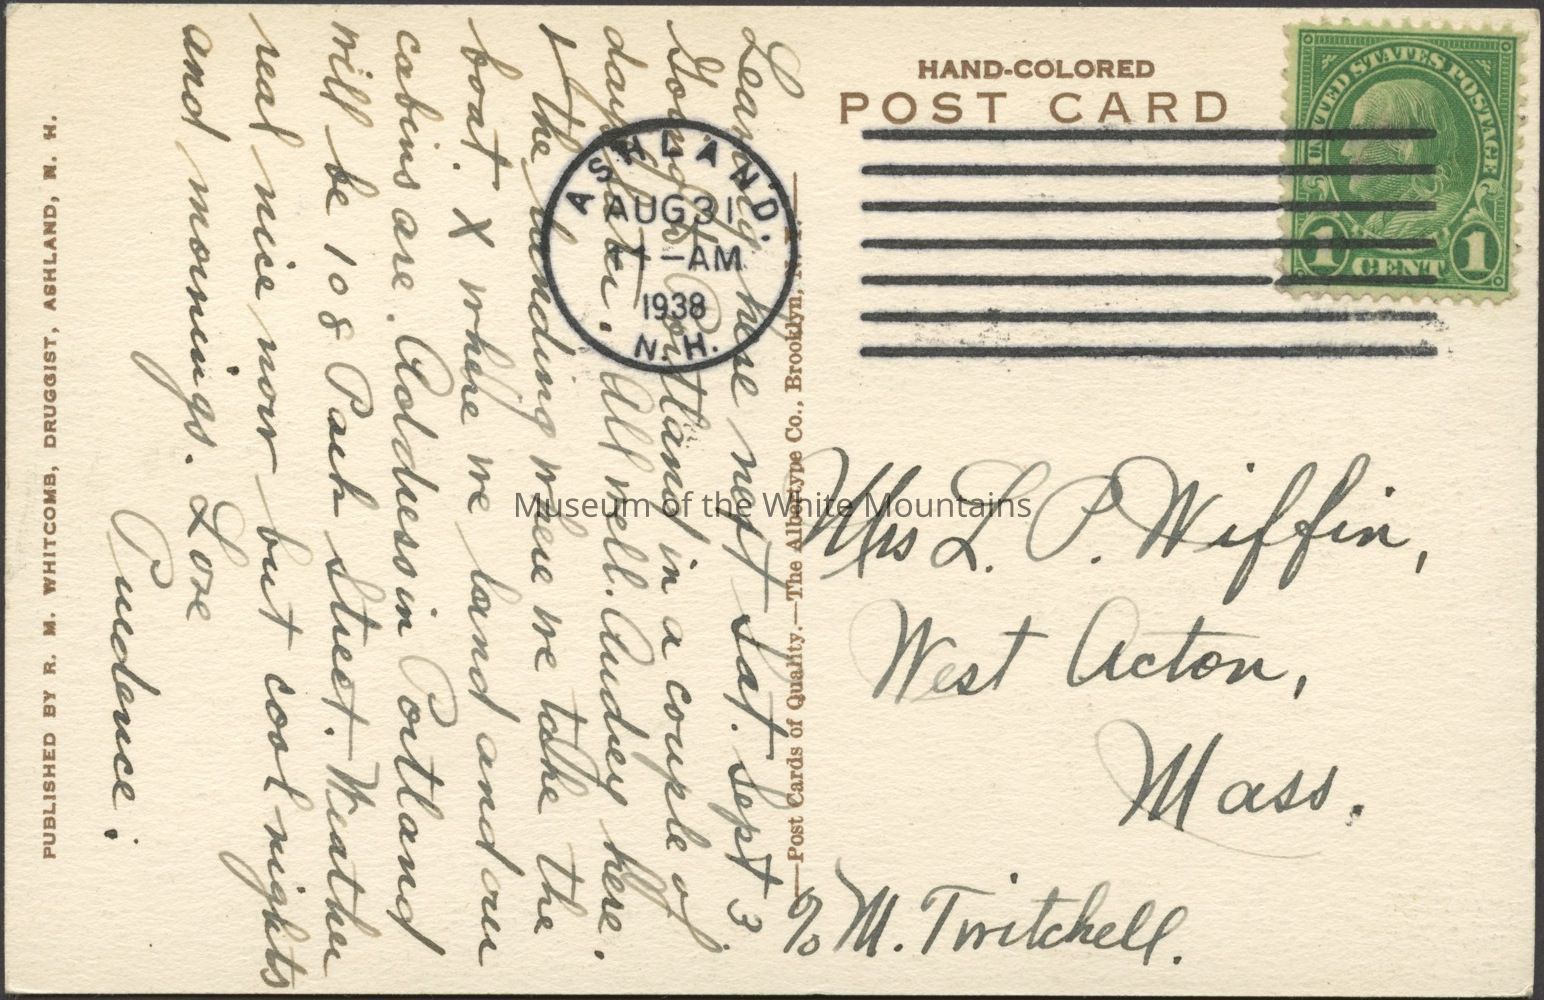 HAND-COLORED
POST CARD
UNITED STATES POSTAGE
1 CENT 1
ASHLAND.
AUG 31
-AM
1938
N.H.
Leaving here not Sat. Sept 3
Going to Portland in a couple of
days later. All well. Audrey here.
the landing where we take the
boat. X where we land and our
cabins are. Address in Portland
will be 108 Park Street. Weather
real nice now but cool nights
and mornings. Love
Prudence.
Mrs L. P. Wiffin,
West Acton,
Mass.
c/o M. Twitchell.
PUBLISHED BY R. M. WHITCOMB, DRUGGIST, ASHLAND, N. H.
—Post Cards of Quality.—The Albertype Co., Brooklyn, N. Y.—
Museum of the White Mountains